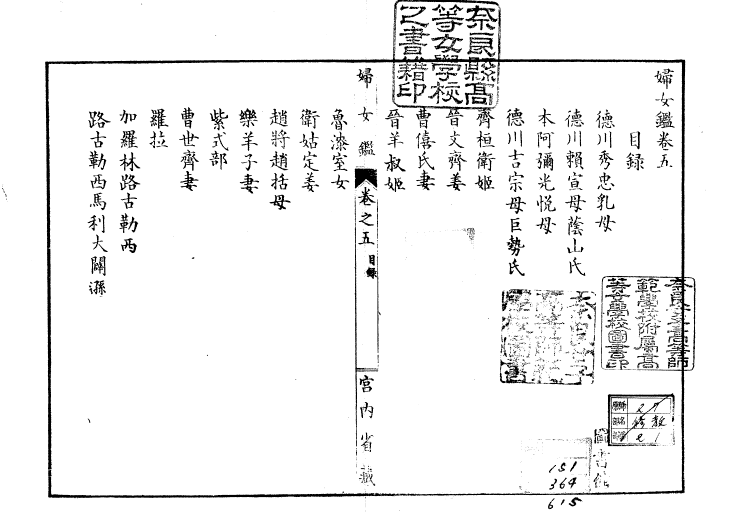 婦女鑑卷五
目録
德川秀忠乳母
德川賴宣母蔭山氏
本阿彌光悦母
德川吉宗母巨勢氏
齊桓衛姬
晉文齊姜
曹僖氏妻
晉羊叔姬
婦女鑑
卷之五
目録
宮內省藏
魯漆室女
衛姑定姜
趙將趙括母
樂羊子妻
紫式部
曹世齊妻
羅拉
加羅林路古勒西
路古勒西馬利大闢遜
奈良縣高
等女學校
之書籍印
奈良女子高等師
範學校附屬高
等女學校圖書印
修教
151
364
615